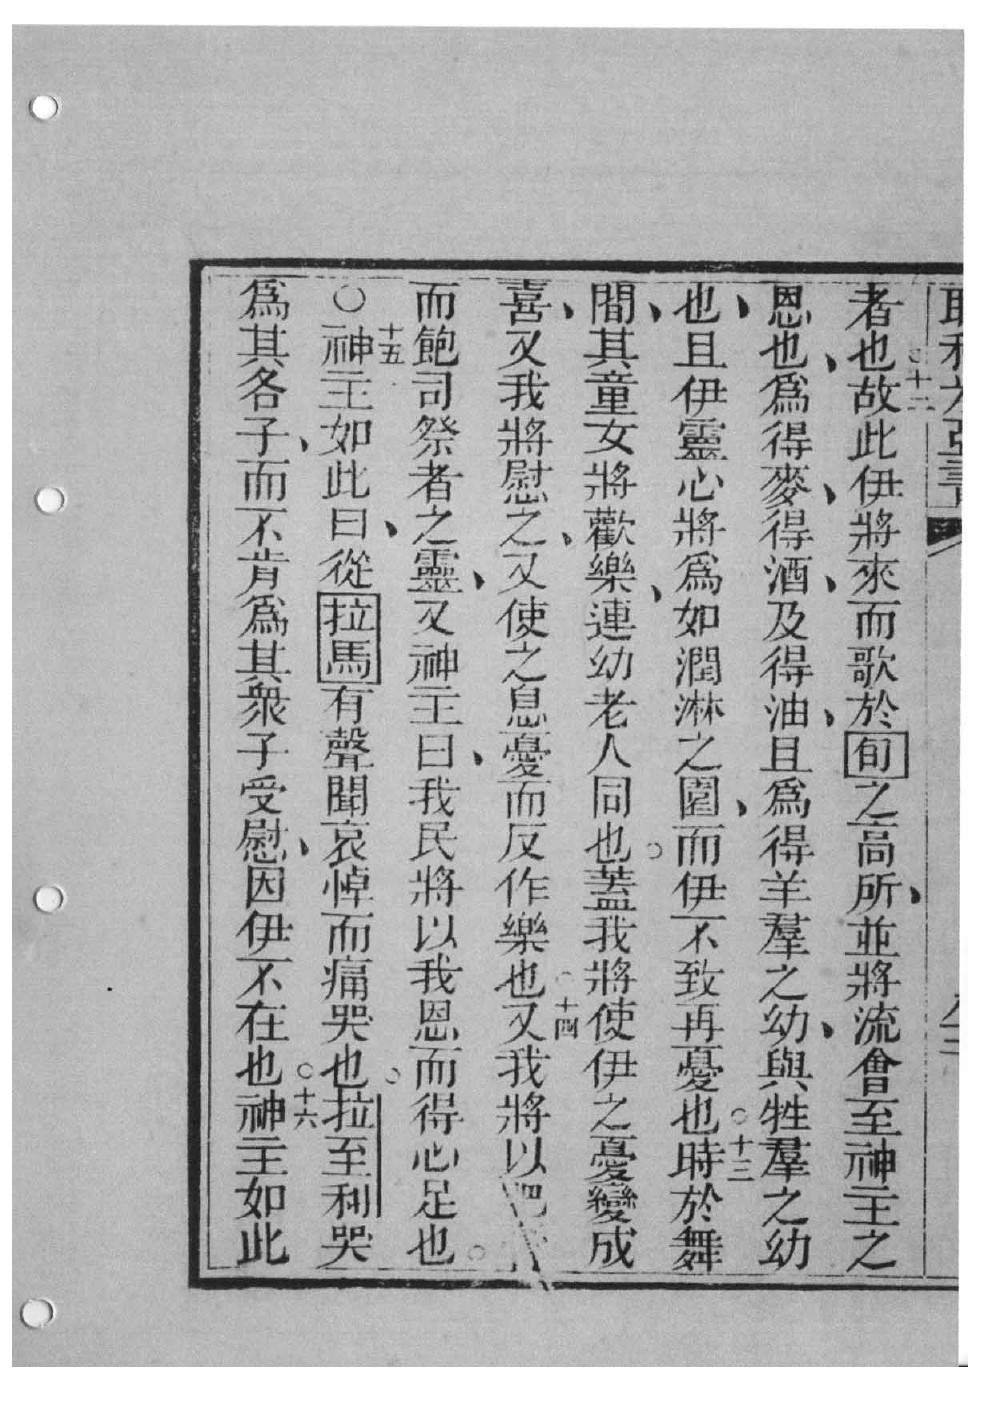 耶利米亞書
者也故此伊將來而歌於旬之高所並將流會至神主之
恩也為得麥得酒及得油且為得羊羣之幼與牲羣之幼
也且伊靈心將為如潤淋之園而伊不致再憂也時於舞
間其童女將歡樂連幼老人同也蓋我將使伊之憂變成
喜又我將慰之又使之息憂而反作樂也又我將以肥
而飽司祭者之靈又神主曰我民將以我恩而得心足也
○神主如此曰從拉馬有聲聞哀悼而痛哭也拉至利哭
爲其各子而不肯爲其衆子受慰因伊不在也神主如此
十二
十三
十四
十五
十六